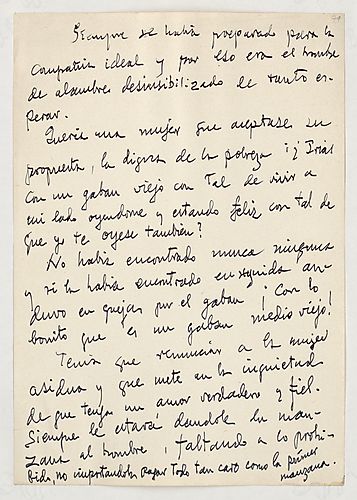 Siempre se había preparado para la
compañía ideal y por eso era el hombre
de alambre desinsibilizado de tanto es-
perar.
Quería una mujer que aceptase su
propuesta, la digna de la pobreza: ¿Irías
con un gabán viejo con tal de vivir a
mi lado oyendome y estando feliz con tal de
que yo te oyese también?
No había encontrado nunca ninguna
y si la había encontrado enseguida an-
duvo en quejas por el gabán ¡Con lo
bonito que es un gabán medio viejo!
Tenía que renunciar a la mujer
asidua y que mete en la inquietud
de que tenga un amor verdadero y fiel.
Siempre le estará dandole la man-
zana al hombre, faltando a lo prohi-
bido, no importandole pagar todo tan caro como la primer
manzana.